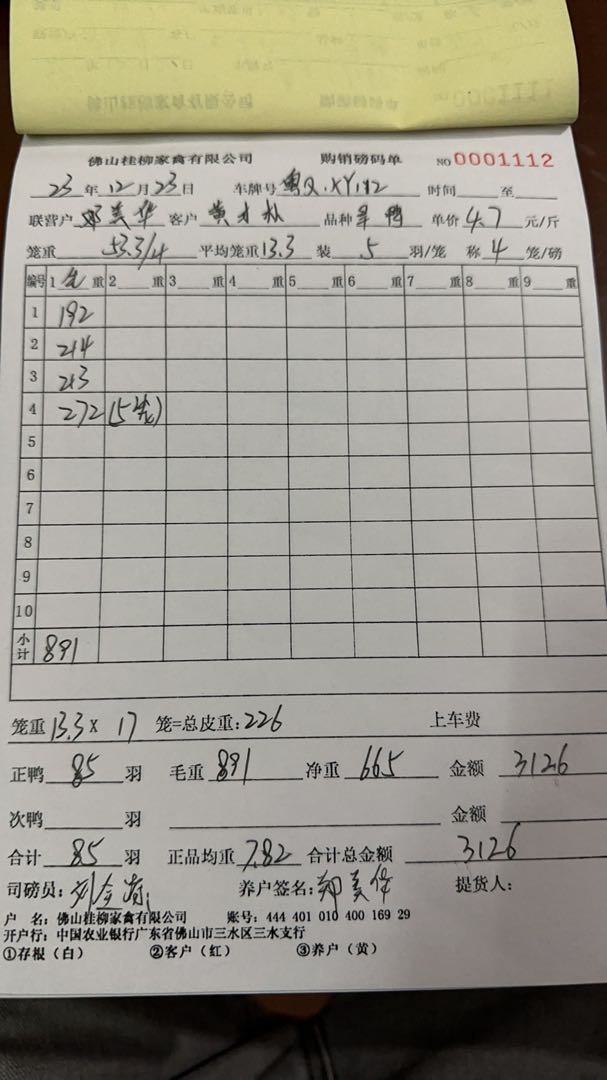 佛山桂柳家禽有限公司 购销磅码单 NO 0001112
23年12月23日 车牌号 时间 至
联营户 邓美华 客户 黄才 品种 鸭 单价 4.7 元/斤
笼重 53.3/4 平均笼重 13.3 装 5 羽/笼 称 4 笼/磅
编号 1 毛 重 2 重 3 重 4 重 5 重 6 重 7 重 8 重 9 重
1 192
2 214
3 213
4 272 (5笼)
5
6
7
8
9
10
小计 891
笼重 13.3 X 17 笼=总皮重: 226 上车费
正鸭 85 羽 毛重 891 净重 665 金额 3126
次鸭 羽 金额
合计 85 羽 正品均重 7.82 合计总金额 3126
司磅员: 刘金 养户签名: 邓美华 提货人:
户 名: 佛山桂柳家禽有限公司 账号: 444 401 010 400 169 29
开户行: 中国农业银行广东省佛山市三水区三水支行
①存根（白） ②客户（红） ③养户（黄）